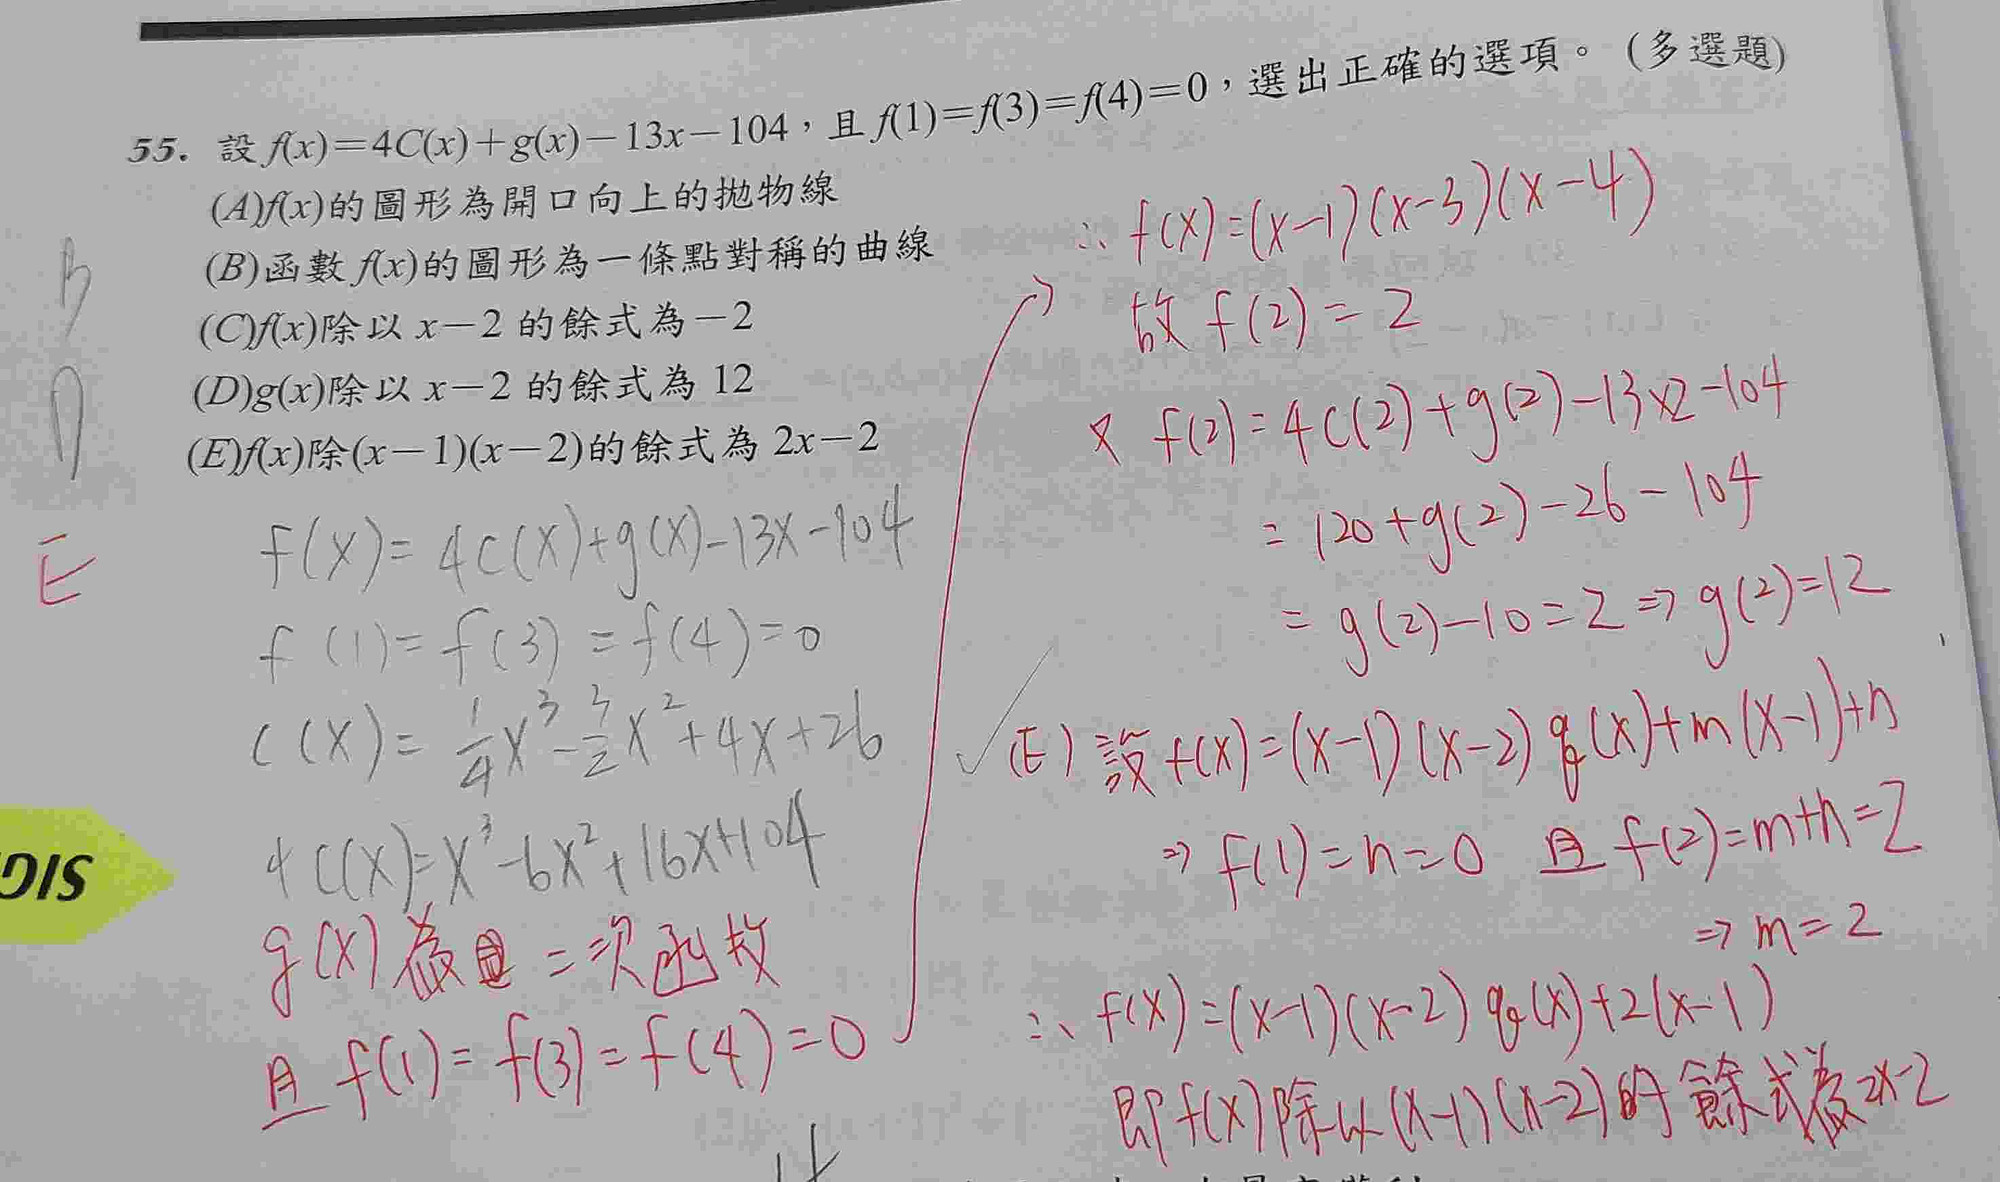 55. 設f(x)=4C(x)+g(x)−13x−104，且f(1)=f(3)=f(4)=0，選出正確的選項。(多選題)
(A)f(x)的圖形為開口向上的拋物線
(B)函數f(x)的圖形為一條點對稱的曲線
(C)f(x)除以x−2的餘式為−2
(D)g(x)除以x−2的餘式為12
(E)f(x)除(x−1)(x−2)的餘式為2x−2
B
D
E
f(x)=4C(x)+g(x)-13x-104
f(1)=f(3)=f(4)=0
C(x)=1/4x³-3/2x²+4x+26
4C(x)=x³-6x²+16x+104
g(x)為二次函數
且f(1)=f(3)=f(4)=0
∴f(x)=(x-1)(x-3)(x-4)
故f(2)=2
又f(2)=4C(2)+g(2)-13×2-104
=120+g(2)-26-104
=g(2)-10=2⇒g(2)=12
(E)設f(x)=(x-1)(x-2)q(x)+m(x-1)+n
⇒f(1)=n=0 且f(2)=m+n=2
⇒m=2
∴f(x)=(x-1)(x-2)q(x)+2(x-1)
即f(x)除以(x-1)(x-2)的餘式為2x-2